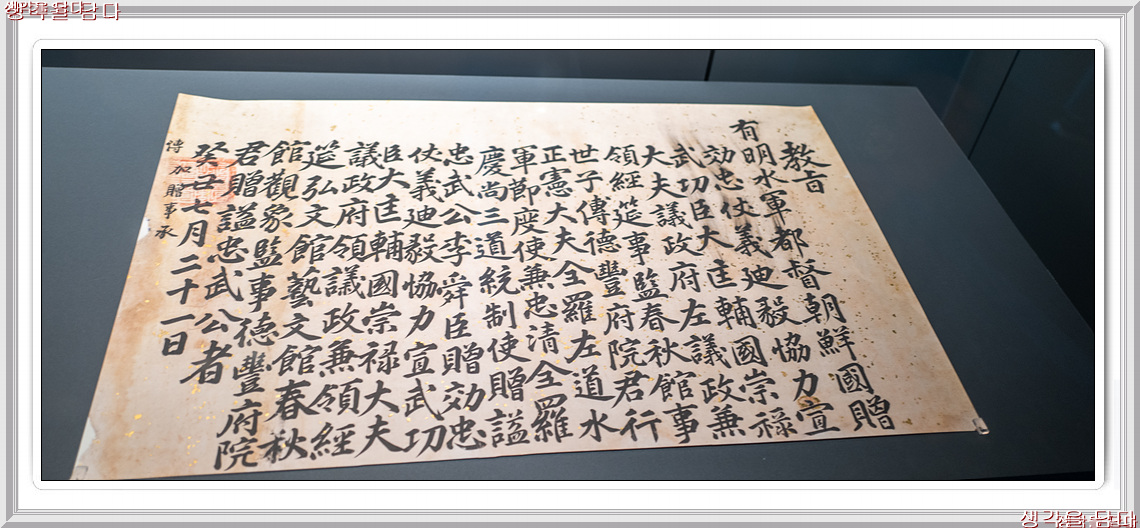 생각을 담다
教旨
有明水軍都督朝鮮國贈
効忠仗義迪毅協力宣
武功臣大匡輔國崇禄
大夫議政府左議政兼
領經筵事監春秋館事
世子傅德豐府院君行
正憲大夫全羅左道水
軍節度使兼忠清全羅
慶尚三道統制使贈謚
忠武公李舜臣贈効忠
仗義迪毅協力宣武功
臣大匡輔國崇禄大夫
議政府領議政兼領經
筵弘文館藝文館春秋
館觀象監事德豐府院
君贈謚忠武公者
癸丑七月二十一日
傳加贈事承
생각을 담다